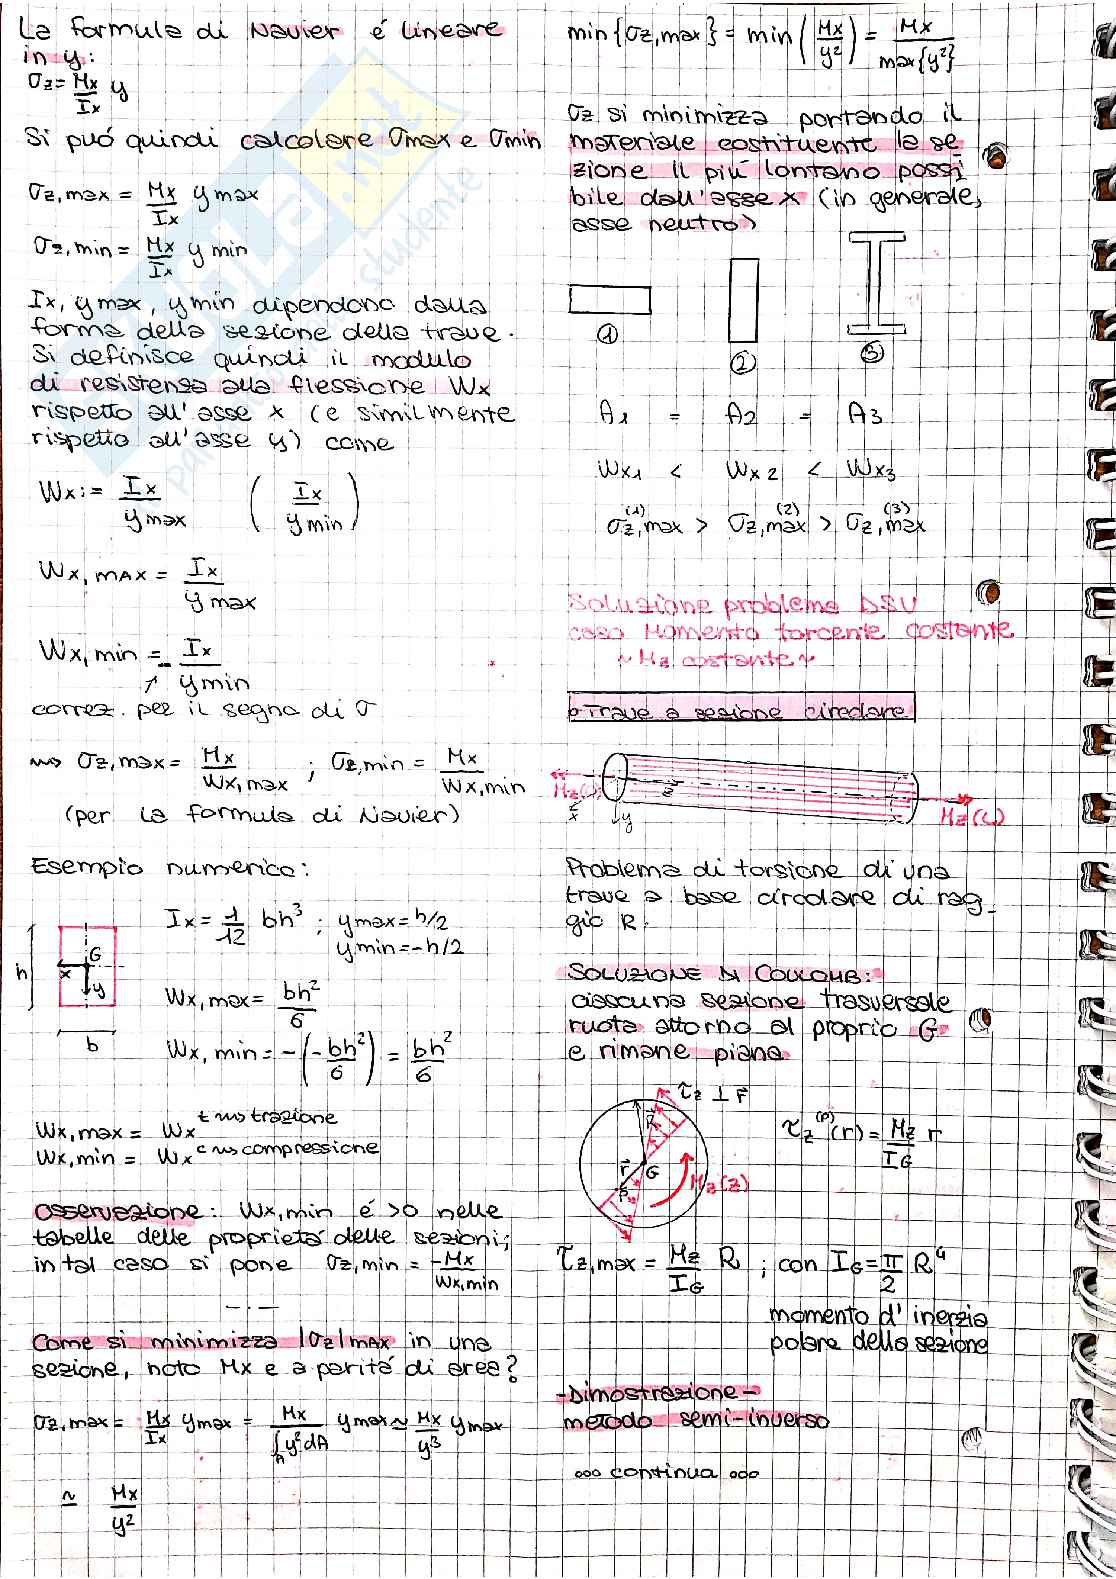 La formula di Navier é lineare
in y:
σz = Mx/Ix y
Si puó quindi calcolare σmax e σmin
σz,max = Mx/Ix ymax
σz,min = Mx/Ix ymin
Ix, ymax, ymin dipendono dalla
forma della sezione della trave.
Si definisce quindi il modulo
di resistenza alla flessione Wx
rispetto all'asse x (e similmente
rispetto all'asse y) come
Wx := Ix/ymax (Ix/ymin)
Wx,MAX = Ix/ymax
Wx,min = - Ix/ymin
↗
correz. per il segno di σ
⇝ σz,max = Mx/Wx,max ; σz,min = Mx/Wx,min
(per la formula di Navier)
Esempio numerico:
Ix = 1/12 bh³ ; ymax = h/2
ymin = -h/2
h
G
x
y
b
Wx,max = bh²/6
Wx,min = -(-bh²/6) = bh²/6
Wx,max = Wx t ⇝ trazione
Wx,min = Wx c ⇝ compressione
Osservazione: Wx,min é >0 nelle
tabelle delle proprietá delle sezioni;
in tal caso si pone σz,min = -Mx/Wx,min
Come si minimizza |σz|MAX in una
sezione, noto Mx e a paritá di area?
σz,max = Mx/Ix ymax = Mx/∫A y²dA ymax ≃ Mx/y³ ymax
≃ Mx/y²
min{σz,max} = min(Mx/y²) = Mx/max{y²}
σz si minimizza portando il
materiale costituente la se
zione il piú lontano possi
bile dall'asse x (in generale,
asse neutro)
1 2 3
A1 = A2 = A3
Wx1 < Wx2 < Wx3
σz,max(1) > σz,max(2) > σz,max(3)
Soluzione problema DSV
caso Momento torcente costante
~ Mz costante ~
• Trave a sezione circolare
Mz(0) z
x y
Mz(L)
Problema di torsione di una
trave a base circolare di rag-
gio R.
SOLUZIONE DI COULOMB:
ciascuna sezione trasversale
ruota attorno al proprio G
e rimane piana
τz ⊥ r
R
r G
P
Mz(z)
τz(P)(r) = Mz/IG r
τz,max = Mz/IG R ; con IG = π/2 R⁴
momento d'inerzia
polare della sezione
-Dimostrazione-
metodo semi-inverso
ooo continua ooo